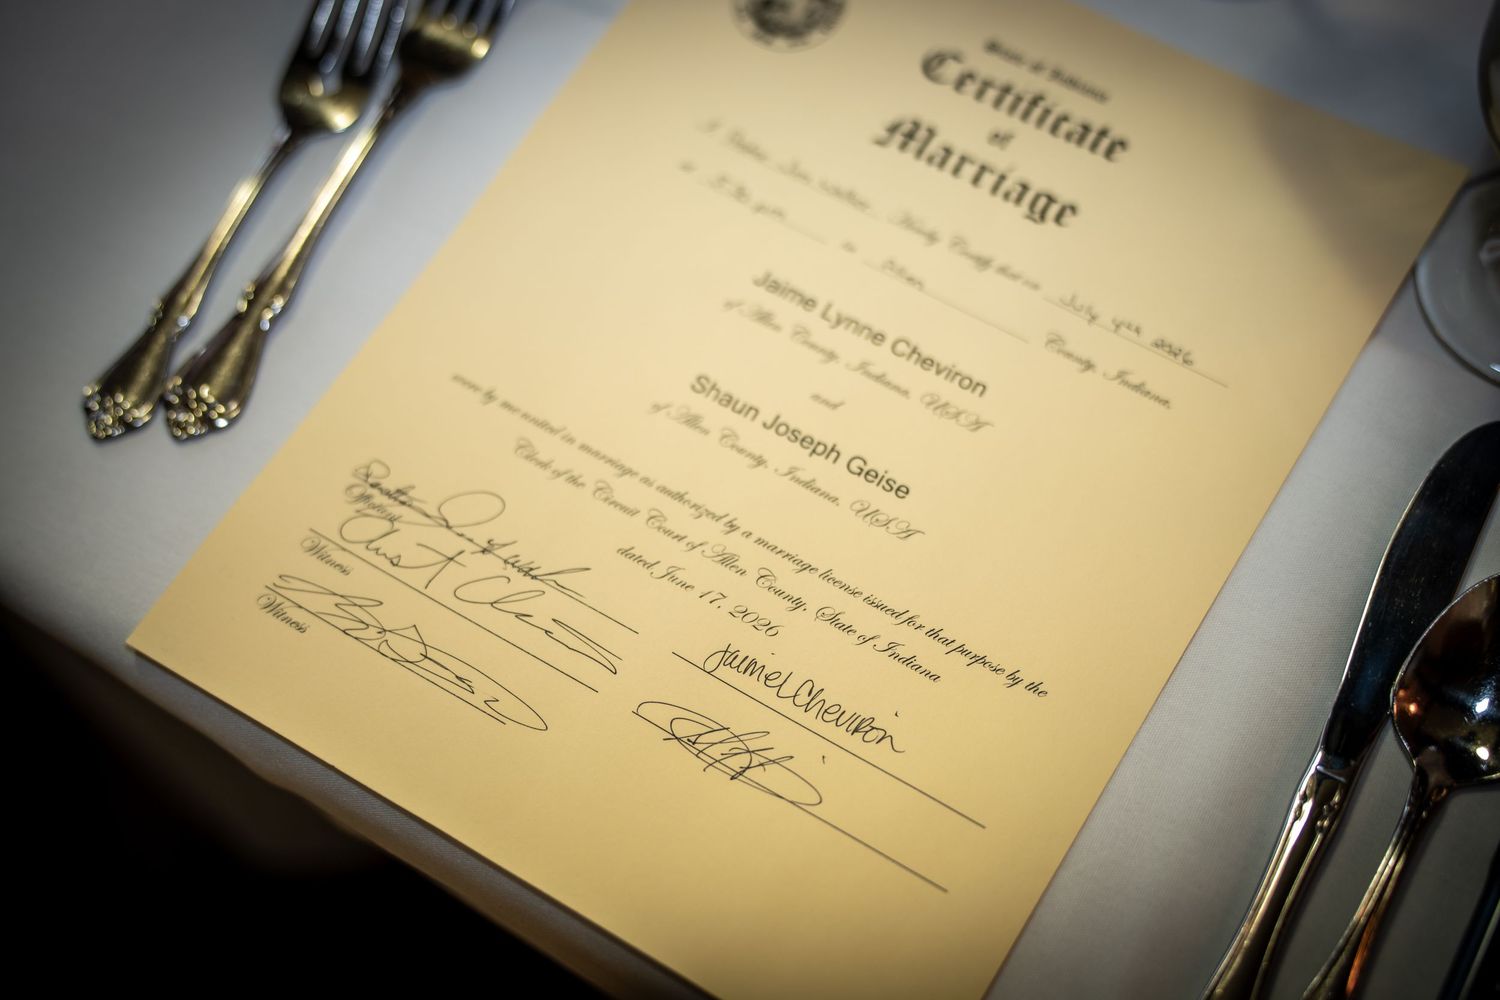 State of Indiana
Certificate
of
Marriage
I
certify that on July 4th 2026
at in Allen County, Indiana,
Jaime Lynne Cheviron
of Allen County, Indiana, USA
and
Shaun Joseph Geise
of Allen County, Indiana, USA
were by me united in marriage as authorized by a marriage license issued for that purpose by the
Clerk of the Circuit Court of Allen County, State of Indiana
dated June 17, 2026
Officiant
Witness
Witness
Jaime L Cheviron